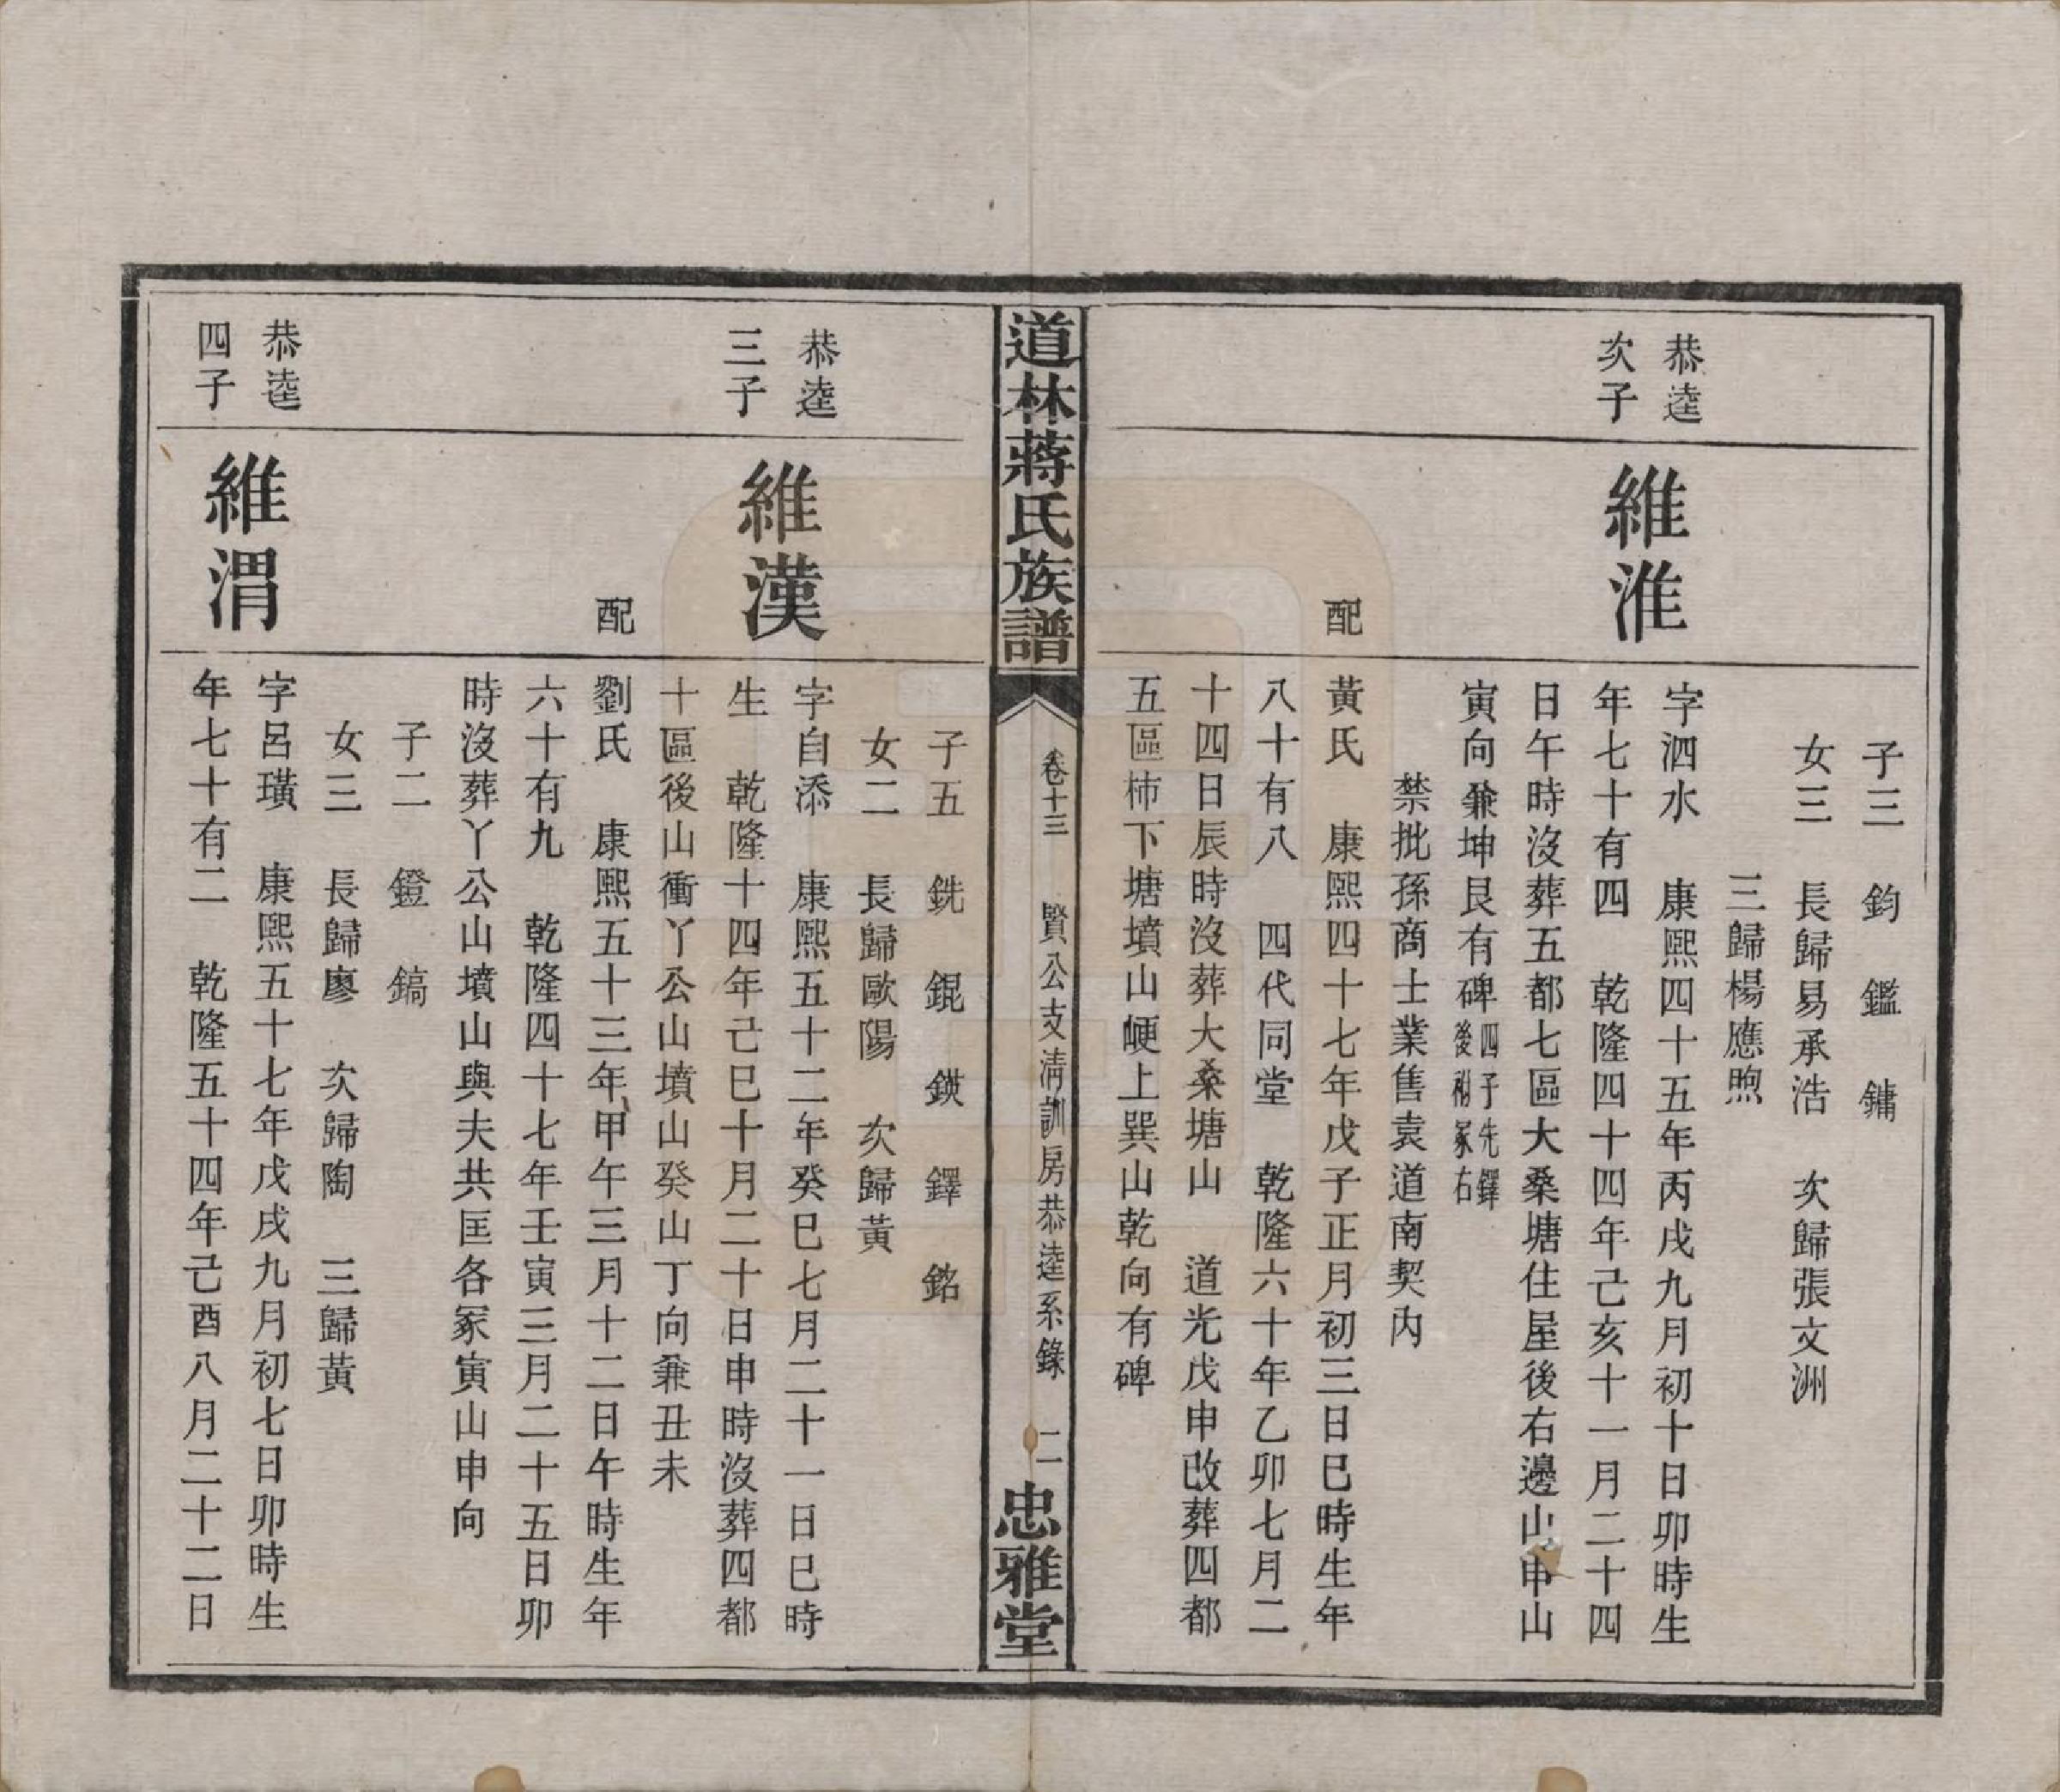 子三 鈞 鑑 鏞
女三 長歸易承浩 次歸張文洲
三歸楊應煦
恭逵
次子
維淮
字泗水 康熙四十五年丙戌九月初十日卯時生
年七十有四 乾隆四十四年己亥十一月二十四
日午時沒葬五都七區大桑塘住屋後右邊山申山
寅向兼坤艮有碑四子先鐸後祔冢右
禁批孫商士業售袁道南契内
配
黃氏 康熙四十七年戊子正月初三日巳時生年
八十有八 四代同堂 乾隆六十年乙卯七月二
十四日辰時沒葬大桑塘山 道光戊申改葬四都
五區柿下塘墳山崾上巽山乾向有碑
道林蔣氏族譜
卷十三
賢公支淸訓房恭逵系錄
二
忠雅堂
子五 銑 錕 鍈 鐸 銘
女二 長歸歐陽 次歸黃
恭逵
三子
維漢
字自添 康熙五十二年癸巳七月二十一日巳時
生 乾隆十四年己巳十月二十日申時沒葬四都
十區後山衝丫公山墳山癸山丁向兼丑未
配
劉氏 康熙五十三年甲午三月十二日午時生年
六十有九 乾隆四十七年壬寅三月二十五日卯
時沒葬丫公山墳山與夫共匡各冢寅山申向
子二 鐙 鎬
女三 長歸廖 次歸陶 三歸黃
恭逵
四子
維渭
字呂璜 康熙五十七年戊戌九月初七日卯時生
年七十有二 乾隆五十四年己酉八月二十二日